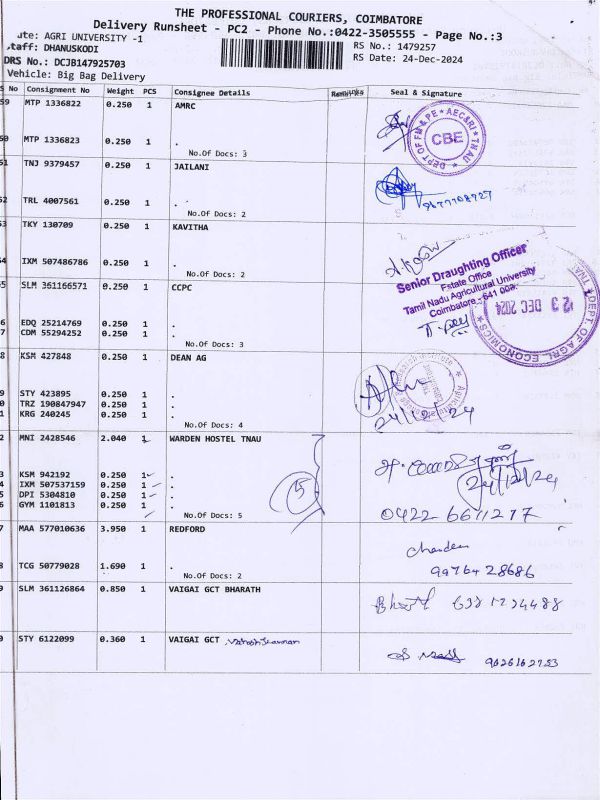 THE PROFESSIONAL COURIERS, COIMBATORE
Delivery Runsheet - PC2 - Phone No.:0422-3505555 - Page No.:3
ute: AGRI UNIVERSITY -1
taff: DHANUSKODI
DRS No.: DCJB147925703
Vehicle: Big Bag Delivery
RS No.: 1479257
RS Date: 24-Dec-2024
S No Consignment No Weight PCS Consignee Details Remarks Seal & Signature
59 MTP 1336822 0.250 1 AMRC
50 MTP 1336823 0.250 1 .
No.Of Docs: 3
DEPT OF FM & PE ★ AEC&RI ★ TNAU ★
CBE
51 TNJ 9379457 0.250 1 JAILANI
52 TRL 4007561 0.250 1 .
No.Of Docs: 2
53 TKY 130709 0.250 1 KAVITHA
54 IXM 507486786 0.250 1 .
No.Of Docs: 2
Senior Draughting Officer
Estate Office
Tamil Nadu Agricultural University
Coimbatore - 641 003.
55 SLM 361166571 0.250 1 CCPC
6 EDQ 25214769 0.250 1 .
7 CDM 55294252 0.250 1 .
No.Of Docs: 3
DEPT. OF AGRL. ECONOMICS
23 DEC 2024
8 KSM 427848 0.250 1 DEAN AG
9 STY 423895 0.250 1 .
0 TRZ 190847947 0.250 1 .
1 KRG 240245 0.250 1 .
No.Of Docs: 4
24/12/24
2 MNI 2428546 2.040 1 WARDEN HOSTEL TNAU
3 KSM 942192 0.250 1 .
4 IXM 507537159 0.250 1 .
5 DPI 5304810 0.250 1 .
6 GYM 1101813 0.250 1 .
No.Of Docs: 5
15
24/12/24
0422 6611217
7 MAA 577010636 3.950 1 REDFORD
8 TCG 50779028 1.690 1 .
No.Of Docs: 2
9976428686
9 SLM 361126864 0.850 1 VAIGAI GCT BHARATH
0 STY 6122099 0.360 1 VAIGAI GCT